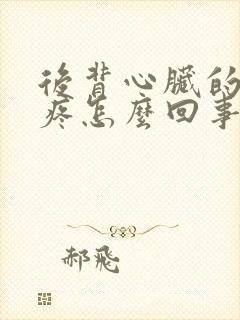 後背心臟的
疼怎麼回事
郝飛